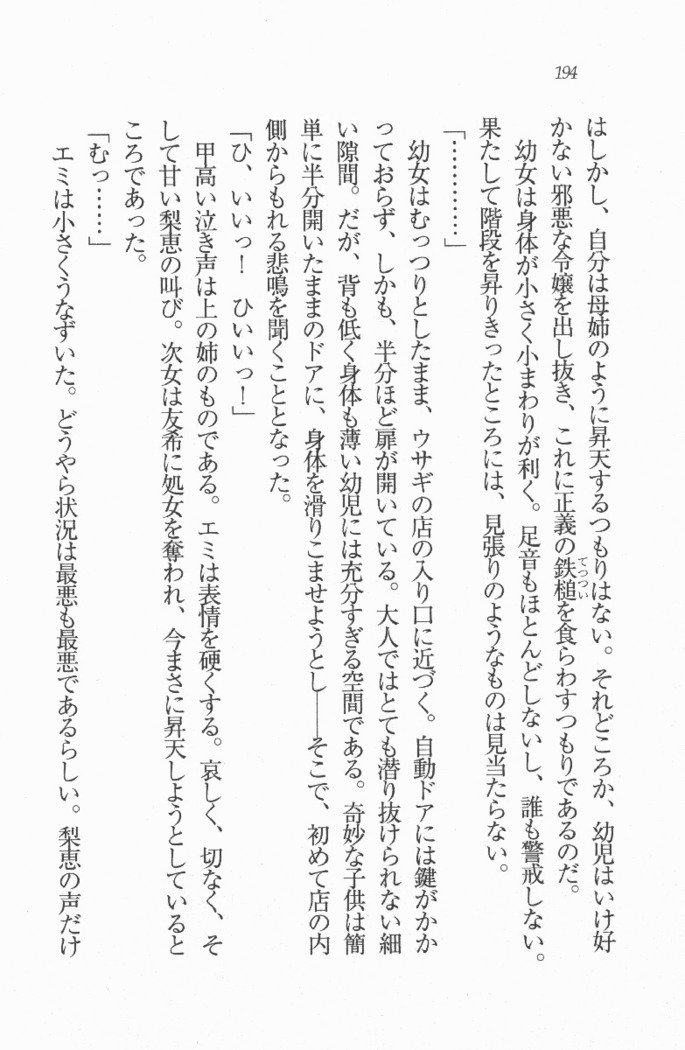 194
はしかし、自分は母姉のように昇天するつもりはない。それどころか、幼児はいけ好
かない邪悪な令嬢を出し抜き、これに正義の鉄槌を食らわすつもりであるのだ。
てっつい
幼女は身体が小さく小まわりが利く。足音もほとんどしないし、誰も警戒しない。
果たして階段を昇りきったところには、見張りのようなものは見当たらない。
「…………」
幼女はむっつりとしたまま、ウサギの店の入り口に近づく。自動ドアには鍵がかか
っておらず、しかも、半分ほど扉が開いている。大人ではとても潜り抜けられない細
い隙間。だが、背も低く身体も薄い幼児には充分すぎる空間である。奇妙な子供は簡
単に半分開いたままのドアに、身体を滑りこませようとし――そこで、初めて店の内
側からもれる悲鳴を聞くこととなった。
「ひ、いいっ！　ひいいっ！」
甲高い泣き声は上の姉のものである。エミは表情を硬くする。哀しく、切なく、そ
して甘い梨恵の叫び。次女は友希に処女を奪われ、今まさに昇天しようとしていると
ころであった。
「むっ……」
エミは小さくうなずいた。どうやら状況は最悪も最悪であるらしい。梨恵の声だけ